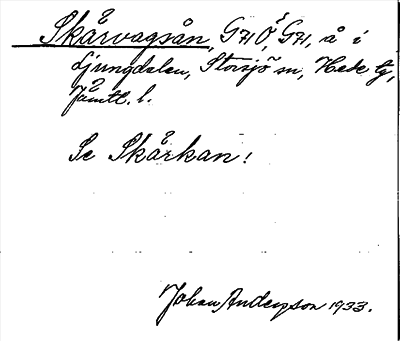 Skårvagsån, G710, G71, å i
Ljungdalen, Storsjö sn, Hede tg,
Jämtl. l.
Se Skårkan!
Johan Anderson 1933.